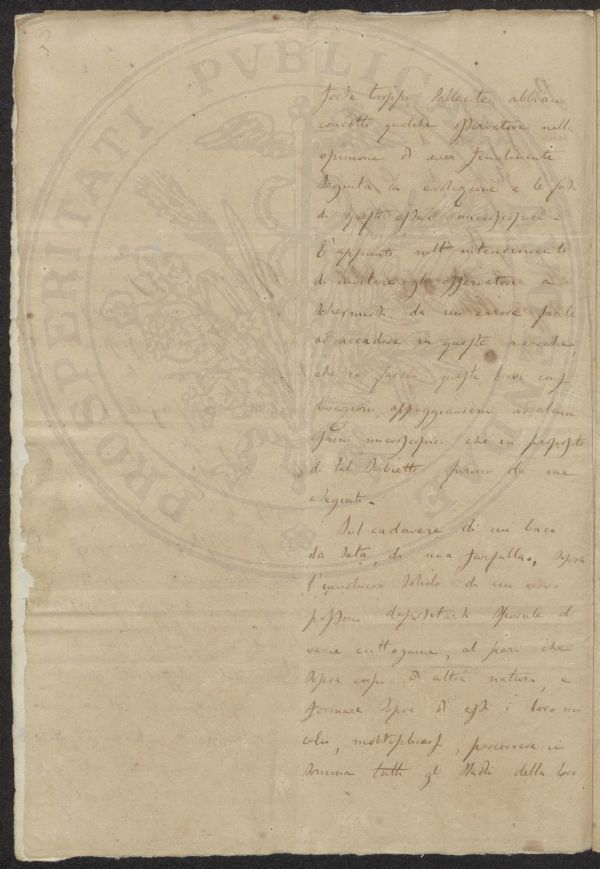 2
PROSPERITATI PVBLICAE
forse troppo allettate abbiano
condotto qualche osservatore nell
opinione di aver finalmente
seguita la evoluzione e le fasi
di questi esseri microscopici.
È appunto nell' intendimento
di invitare gli osservatori a
schermirsi da un errore facile
ad accadere in queste ricerche,
che io faccio queste brevi con
appoggiandomi ad alcuni
microscopici che in proposito
di tal subietto furono da me
eseguiti.
Sul cadavere di un baco
da seta, di una farfalla, sopra
l'involucro solido di un uovo
possono depositarsi sporule di
varie crittogame, al pari che
sopra corpi di altra natura, e
formare sopra di essi i loro mi
celii, moltiplicarsi, percorrere in
somma tutti gli stadi della loro